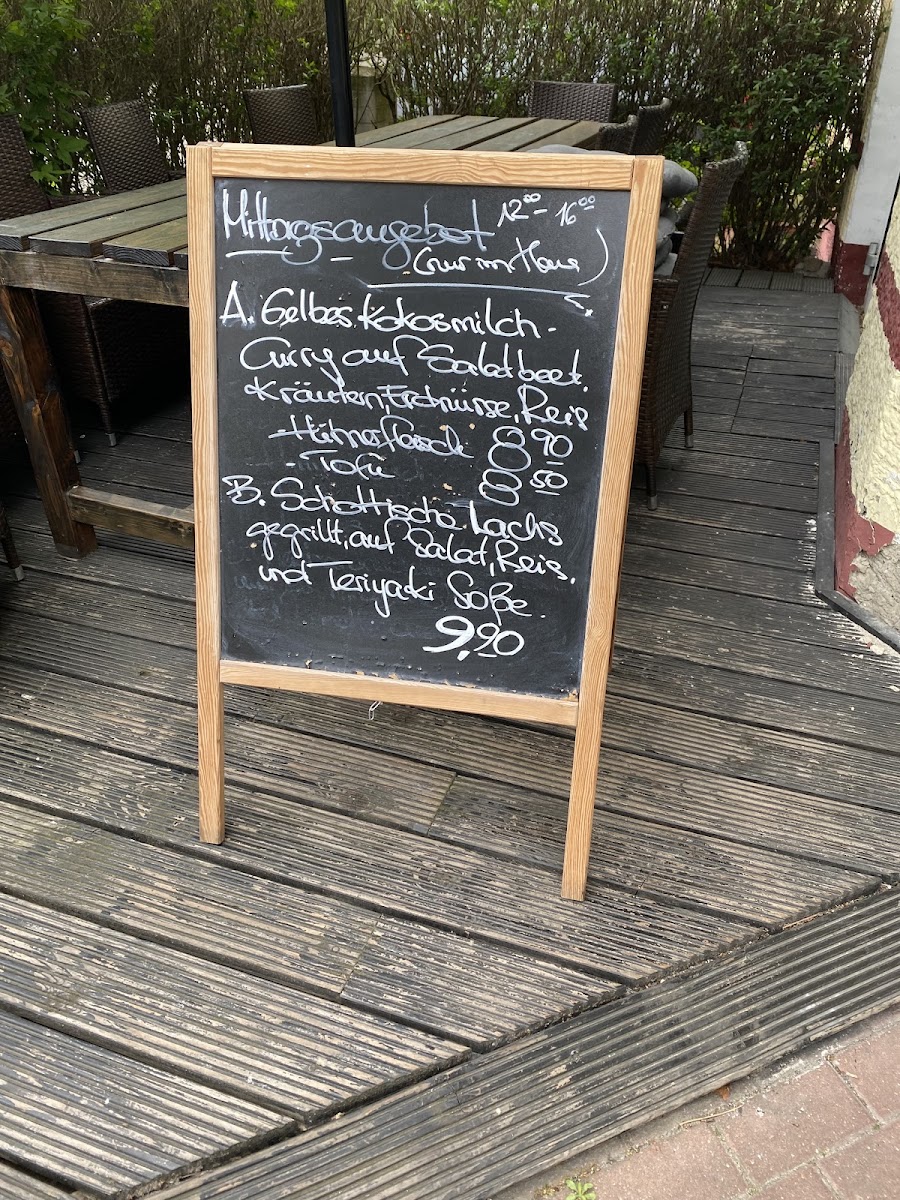 Mittagsangebot 12⁰⁰- 16⁰⁰
(nur im Haus)
A. Gelbes Kokosmilch-
Curry auf Salatbeet,
Kräutern, Erdnüsse, Reis
-Hühnerfleisch 8 90
-Tofu 8 50
B. Schottische Lachs
gegrillt, auf Salat, Reis,
und Teriyaki Soße.
9,90